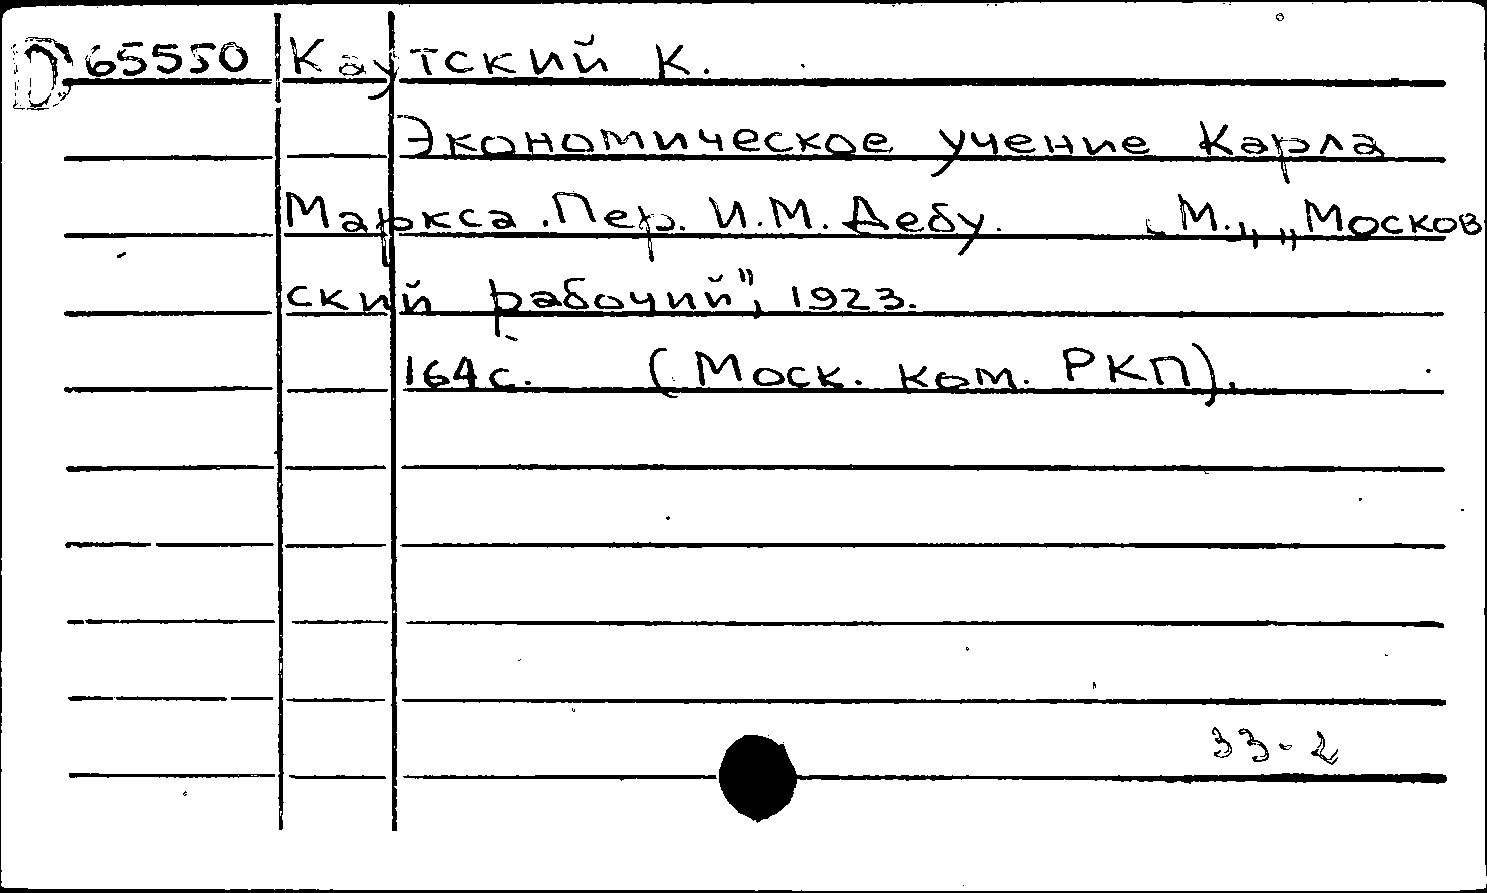 D 65550 Каутский К.
Экономическое учение Карла
Маркса. Пер. И.М. Дебу. М., „Москов
ский рабочий", 1923.
164 с. (Моск. ком. РКП).
33-2